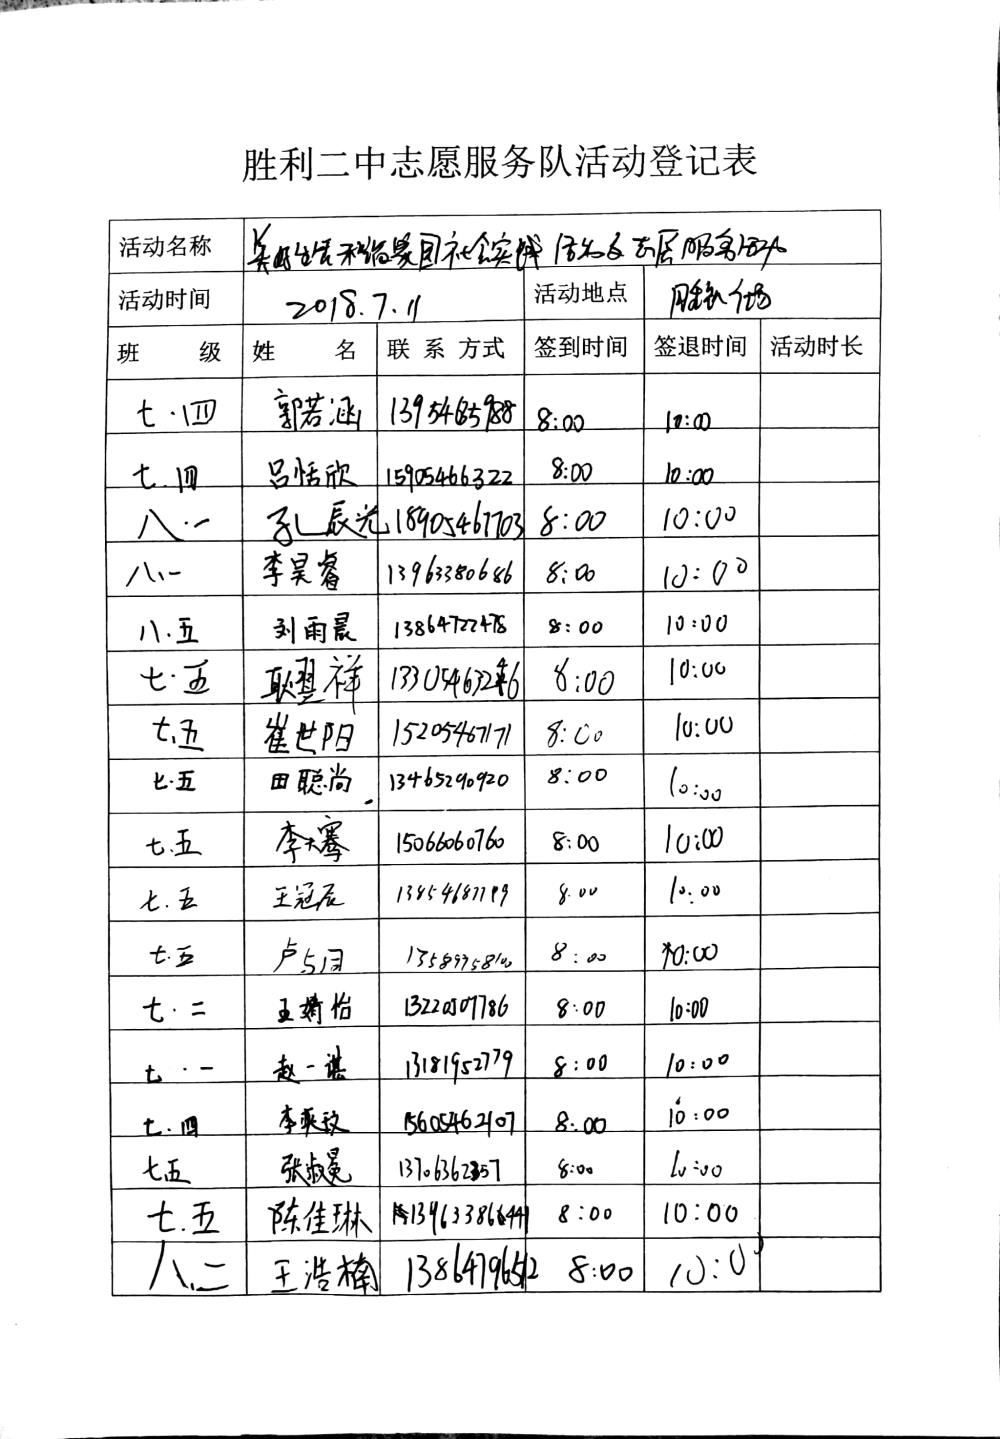 胜利二中志愿服务队活动登记表
活动名称 美好生活 社会实践 活动及志愿服务活动
活动时间 2018.7.11 活动地点
班 级 姓 名 联 系 方式 签到时间 签退时间 活动时长
七·四 郭若涵 13954685988 8:00 10:00
七.四 吕恬欣 15905466322 8:00 10:00
八·一 孔辰光 18905467703 8:00 10:00
八.一 李昊睿 13963380686 8:00 10:00
八.五 刘雨晨 13864722478 8:00 10:00
七·五 耿翌祥 8:00 10:00
七.五 崔世阳 15205467171 8:00 10:00
七·五 田聪尚 13465290920 8:00 10:00
七.五 李天骞 15066060760 8:00 10:00
七.五 王冠辰 8:00 10:00
七·五 8:00 10:00
七·二 王婧怡 13220507786 8:00 10:00
七·一 赵一谋 13181952779 8:00 10:00
七.四 李奕玟 15605462107 8:00 10:00
七五 8:00 10:00
七.五 陈佳琳 8:00 10:00
八.二 王浩楠 8:00